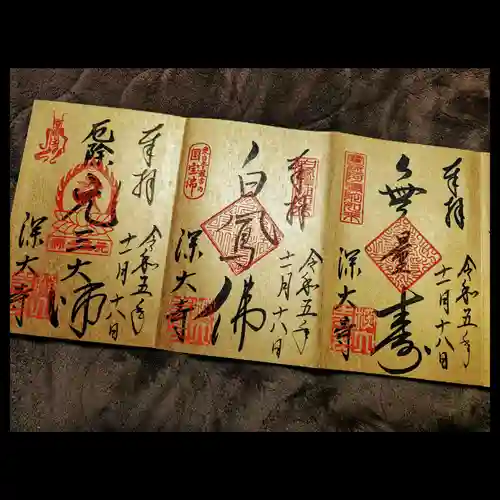 奉拝
令和五年
十一月十八日
無量寿
深大寺
奉拝
令和五年
十一月十八日
白鳳佛
深大寺
奉拝
令和五年
十一月十八日
厄除
元三大師
深大寺